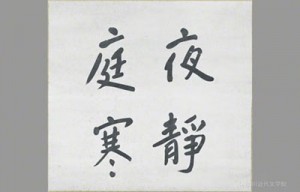 夜靜
庭寒